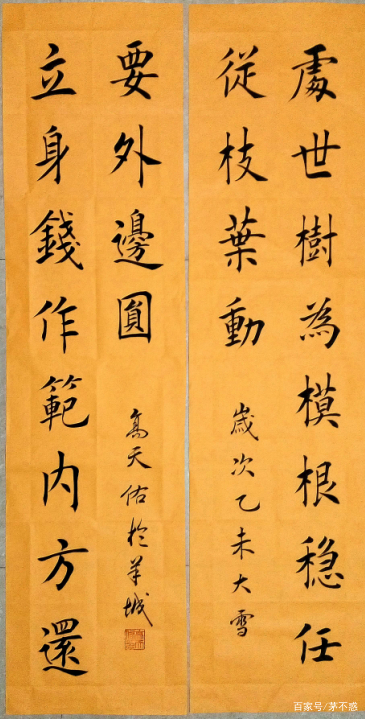 處世樹為模根稳任
從枝葉動
歲次乙未大雪
立身錢作範内方還
要外邊圓
高天佑於羊城
百家号/茅不惑